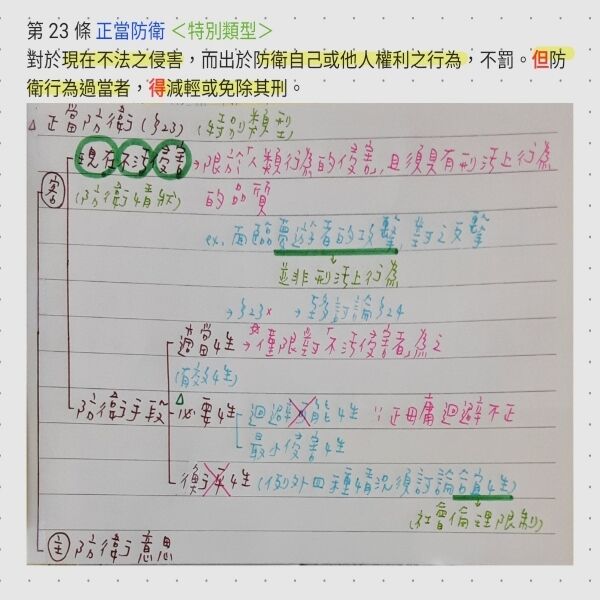 第 23 條 正當防衛 <特別類型>
對於現在不法之侵害，而出於防衛自己或他人權利之行為，不罰。但防
衛行為過當者，得減輕或免除其刑。
△ 正當防衛(§23) (特別類型)
客 現在不法侵害→限於人類行為的侵害，且須具有刑法上行為
(防衛情狀) 的品質
ex. 面臨夢遊者的攻擊，對之反擊
↓
並非刑法上行為
→§23× →改討論§24
適當性→僅限對「不法侵害者」為之
(有效性)
防衛手段 必要性 迴避可能性 ∵正毋庸迴避不正
最小侵害性
衡平性(例外四種情況須討論合宜性)
↓
(社會倫理限制)
主 防衛意思